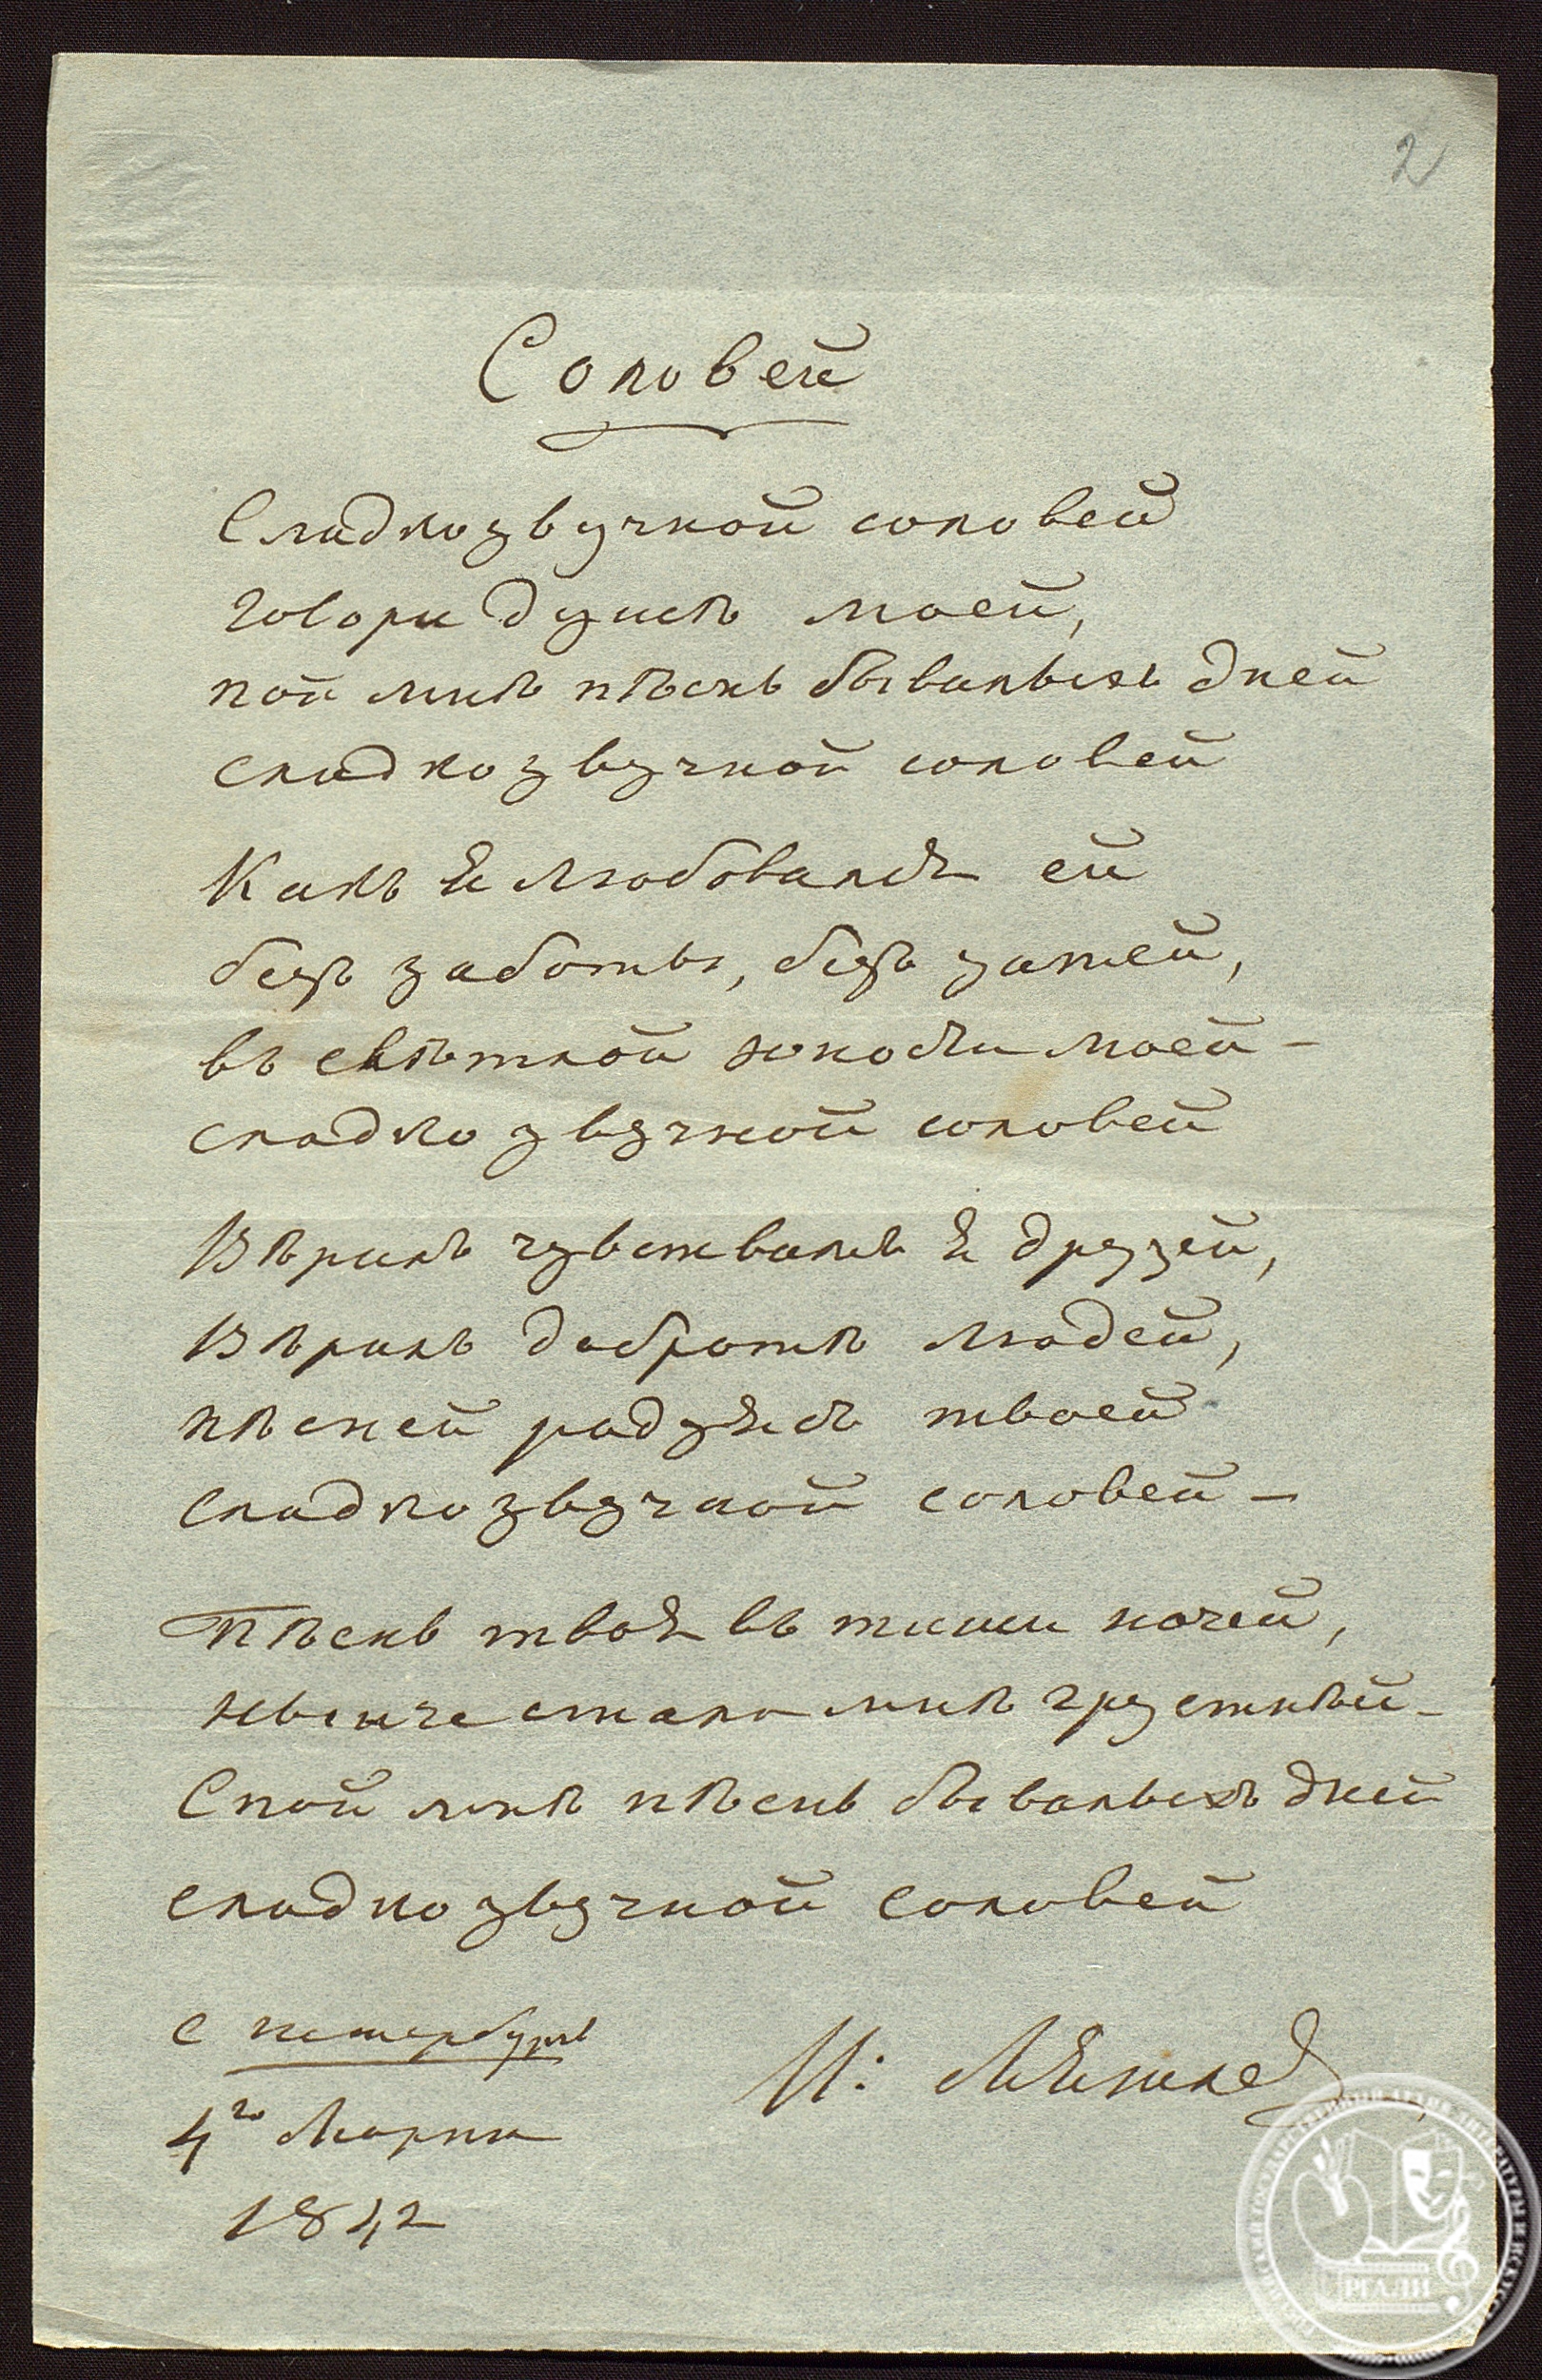 2
Соловей
Сладкозвучной соловей
говори душѣ моей,
пой мнѣ пѣснь бывалыхъ дней
сладкозвучной соловей
Какъ я любовался ей
безъ заботы, безъ затей,
въ свѣтлой юности моей –
сладкозвучной соловей
Вѣрилъ чувствамъ я друзей,
Вѣрилъ добротѣ людей,
пѣсней радуясь твоей
сладкозвучной соловей –
Пѣснь твоя въ тиши ночей,
нынче стала мнѣ грустнѣй –
Спой мнѣ пѣснь бывалыхъ дней
сладкозвучной соловей
С петербургъ
4го Марта
1842
И: Мятлев
РГАЛИ